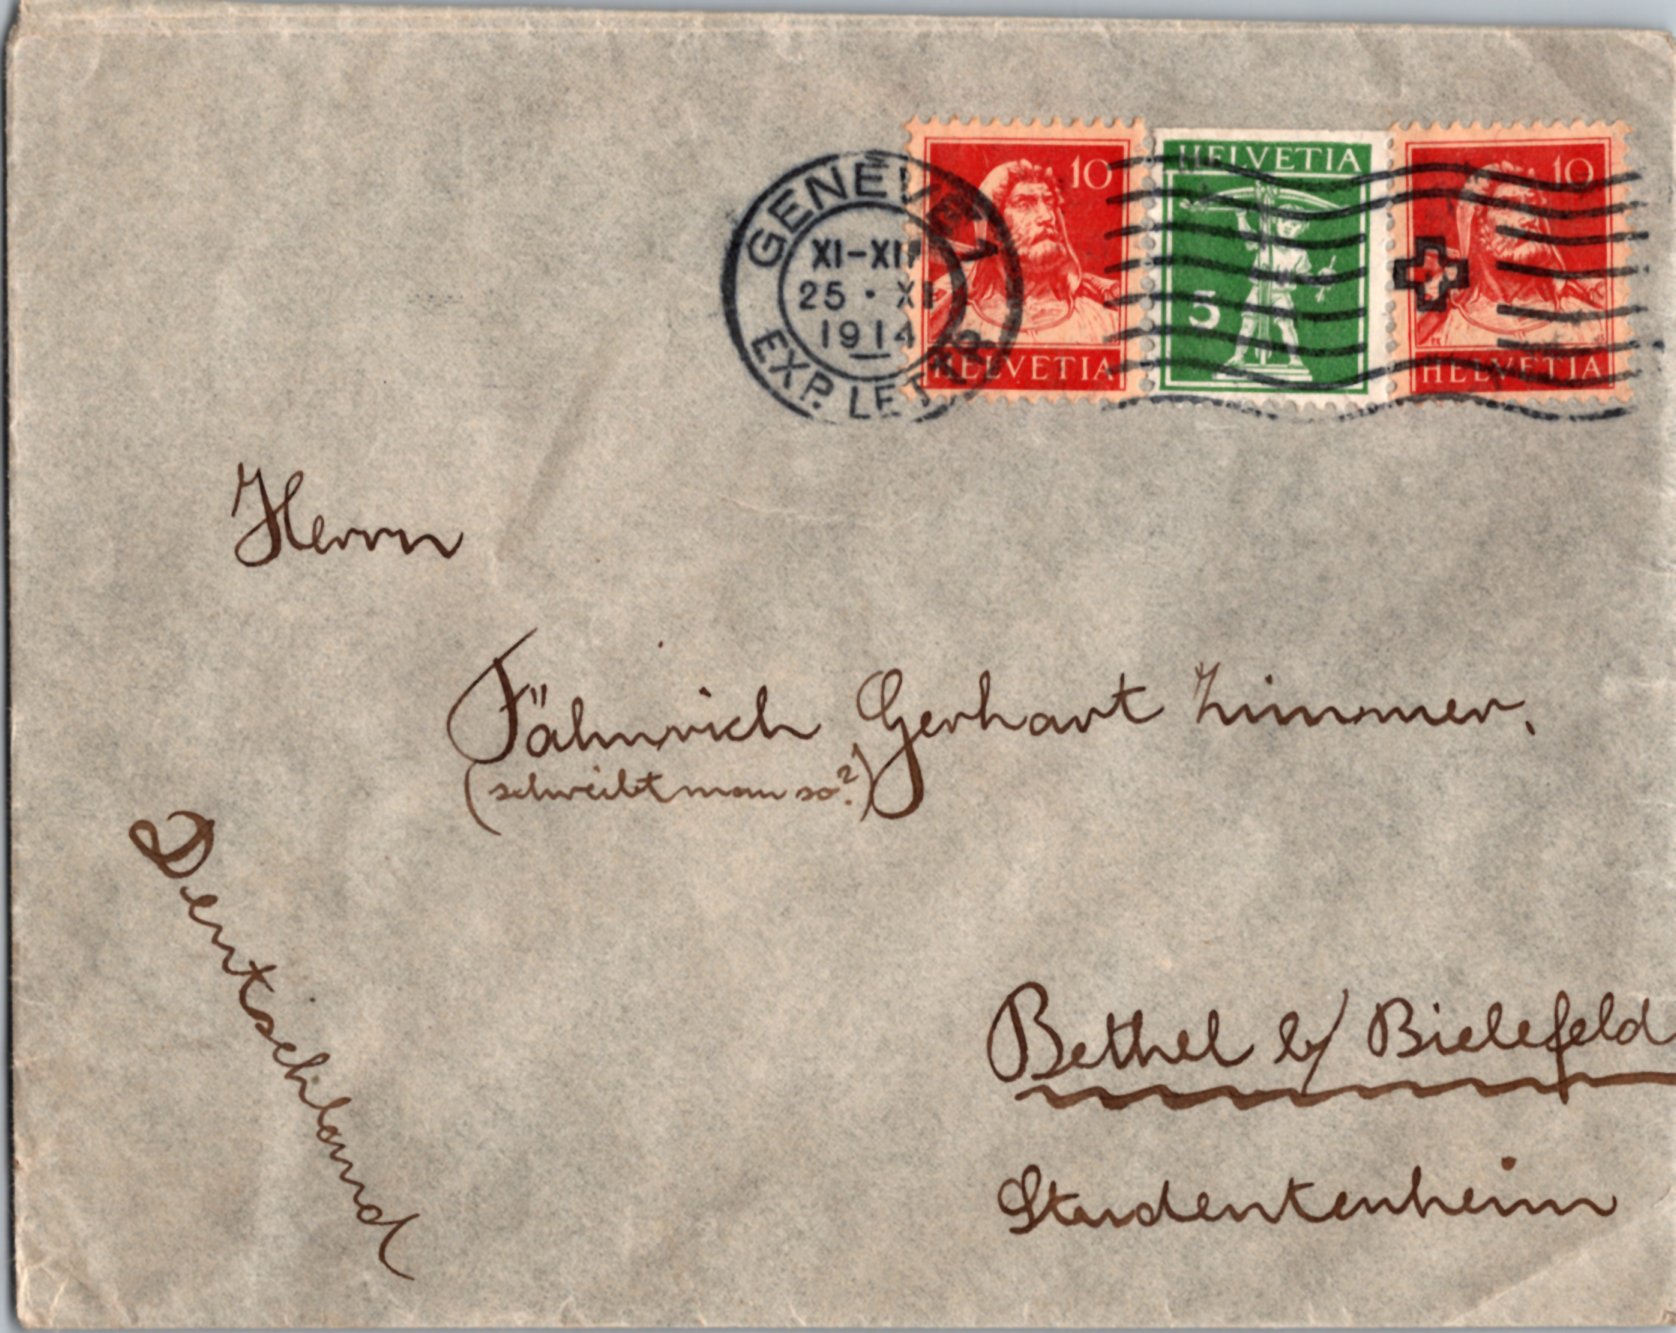 GENÈVE 1
XI-XII
25 · XI
1914
EXP. LETTR
10
HELVETIA
HELVETIA
5
10
HELVETIA
Herrn
Fähnrich Gerhart Zimmer.
(schreibt man so?)
Deutschland
Bethel b/ Bielefeld
Studentenheim